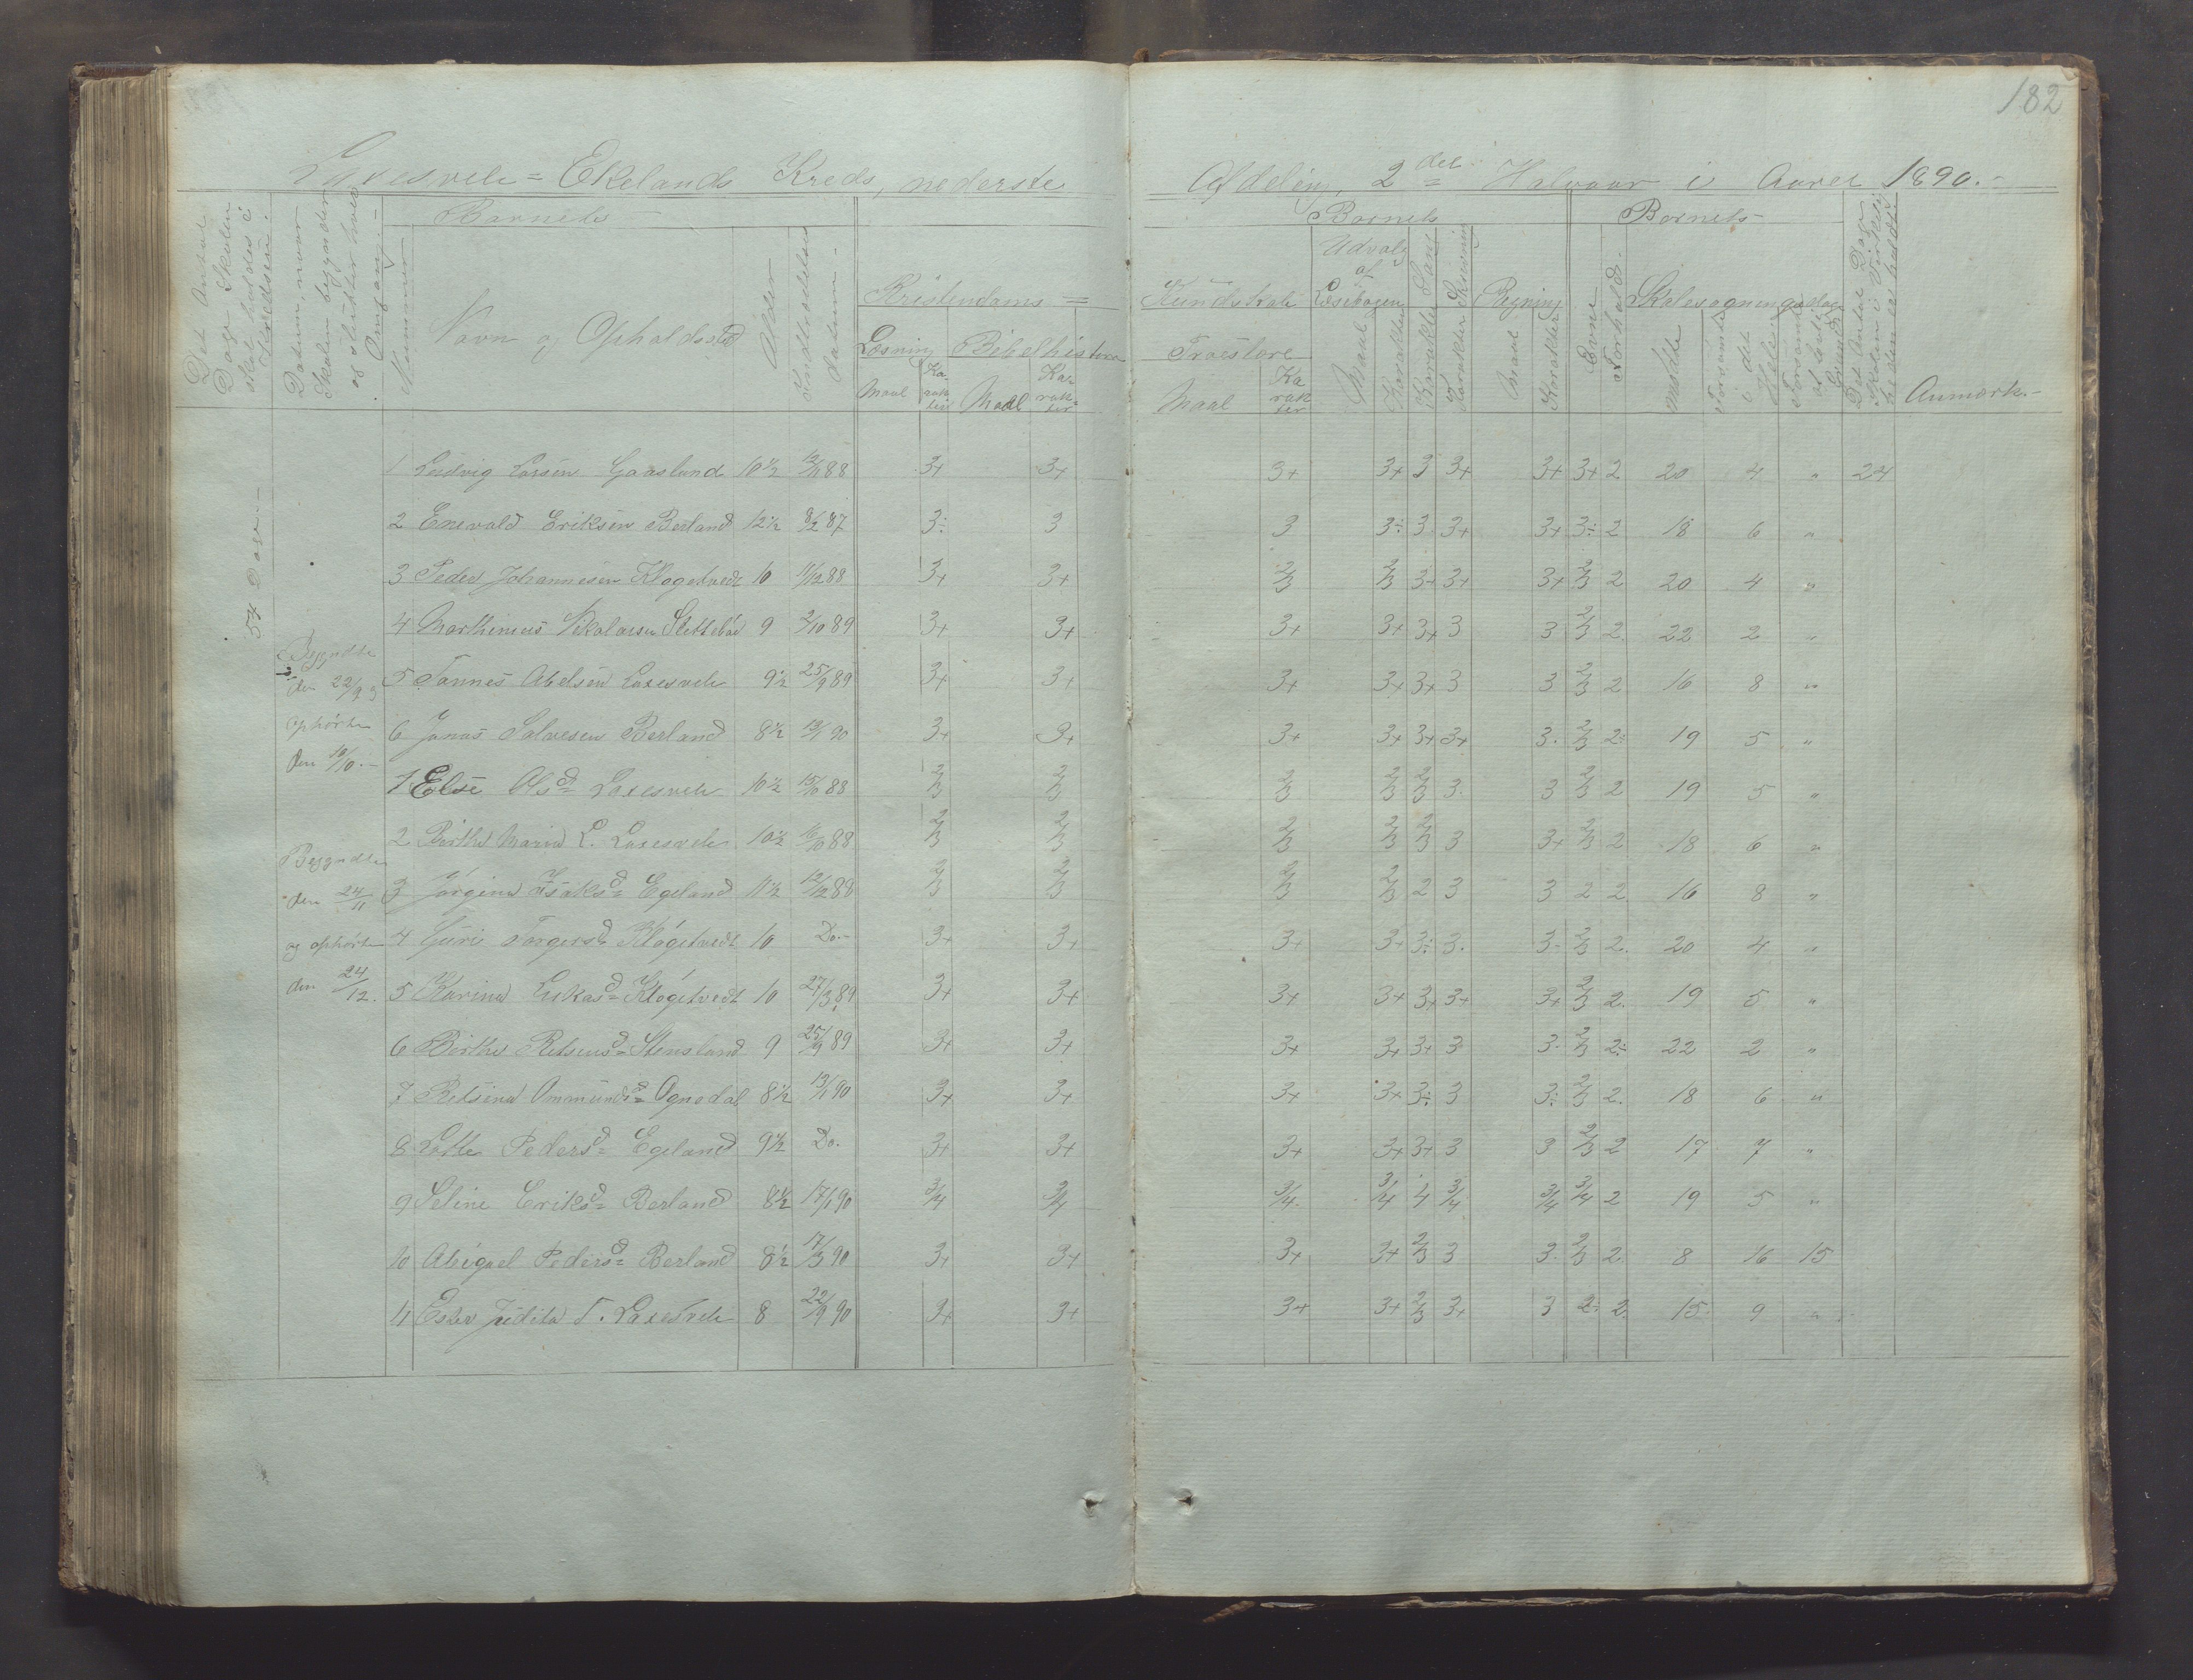 182
Laxesvele = Ekelands Kreds, nederste Afdeling, 2det Halvaar i Aaret 1890.-
Det Antal Dage Skolen skal holdes i Kredsen.
Datum, naar Skolen begynder og slutter hver Omgang.-
Barnets
Nummer
Navn og Opholdssted
Alder
Indtrædelsesdatum.-
Kristendoms =
Læsning
Maal
Karakter
Bibelhistorie
Maal
Karakter
Barnets
Kundskab
Troeslære
Maal
Karakter
Udvalg af Læsebogen
Maal
Karakter
Sang
Karakter
Skrivning
Karakter
Regning
Maal
Karakter
Barnets-
Evne
Forhold.-
Skolesøgningsdage
mødte
forsømte i det Hele
forsømte af lovlig Grund
Det Antal Dage Skolen i Virkeligheden er holdt
Anmærk.-
54 Dage.-
Begyndte
den 22/9 og
ophørte
den 18/10.-
Begyndte
den 24/11
og ophørte
den 24/12.
1 Ludvig Larsen Gaasland 10½ 12/11 88 3+ 3+ 3+ 3+ 3 3+ 3+ 3+ 2 20 4 " 24
2 Enevald Eriksen Berland 12½ 8/2 87 3÷ 3 3 3÷ 3 3+ 3+ 3÷ 2 18 6 "
3 Peder Johannesen Kløgetvedt 10 11/12 88 3+ 3+ 2/3 2/3 3+ 3+ 3+ 2/3 2 20 4 "
4 Marthinius Nikolaisen Slettebø 9 2/10 89 3+ 3+ 3+ 3+ 3+ 3 3 2/3 2 22 2 "
5 Tønnes Abelsen Laxesvele 9½ 25/9 89 3+ 3+ 3+ 3+ 3+ 3 3 2/3 2 16 8 "
6 Jonas Salvesen Berland 8½ 13/1 90 3+ 3+ 3+ 3+ 3+ 3+ 3. 2/3 2÷ 19 5 "
1 Else Olsd= Laxesvele 10½ 15/10 88 2/3 2/3 2/3 2/3 2/3 3. 3 2/3 2 19 5 "
2 Berthe Maria L. Laxesvele 10½ 16/10 88 2/3 2/3 2/3 2/3 2/3 3 3+ 2/3 2 18 6 "
3 Jørgine Isaksd= Egeland 11½ 12/12 88 2/3 2/3 2/3 2/3 2 3 3 2 2 16 8 "
4 Guri Torgersd= Kløgetvedt 10 Do.- 3+ 3+ 3+ 3+ 3÷ 3. 3. 2/3 2. 20 4 "
5 Karine Lukasd= Kløgetvedt 10 27/3 89 3+ 3+ 3+ 3+ 3+ 3+ 3+ 2/3 2. 19 5 "
6 Berthe Retseusd= Stensland 9 25/9 89 3+ 3+ 3+ 3+ 3+ 3 3. 2/3 2÷ 22 2 "
7 Retsine Ommundsd= Ognedal 8½ 13/1 90 3+ 3+ 3+ 3+ 3÷ 3 3÷ 2/3 2. 18 6 "
8 Lotte Pedersd= Egeland 9½ Do. 3+ 3+ 3+ 3+ 3+ 3 3 2/3 2 17 7 "
9 Seline Eriksd= Berland 8½ 17/1 90 3/4 3/4 3/4 3/4 4 3/4 3/4 3/4 2 19 5 "
10 Abigael Pedersd= Berland 8½ 17/3 90 3+ 3+ 3+ 3+ 2/3 3 3. 2/3 2. 8 16 15
11 Ester Judita T. Laxesvele 8 22/9 90 3+ 3+ 3+ 3+ 2/3 3+ 3 2÷ 2. 15 9 "